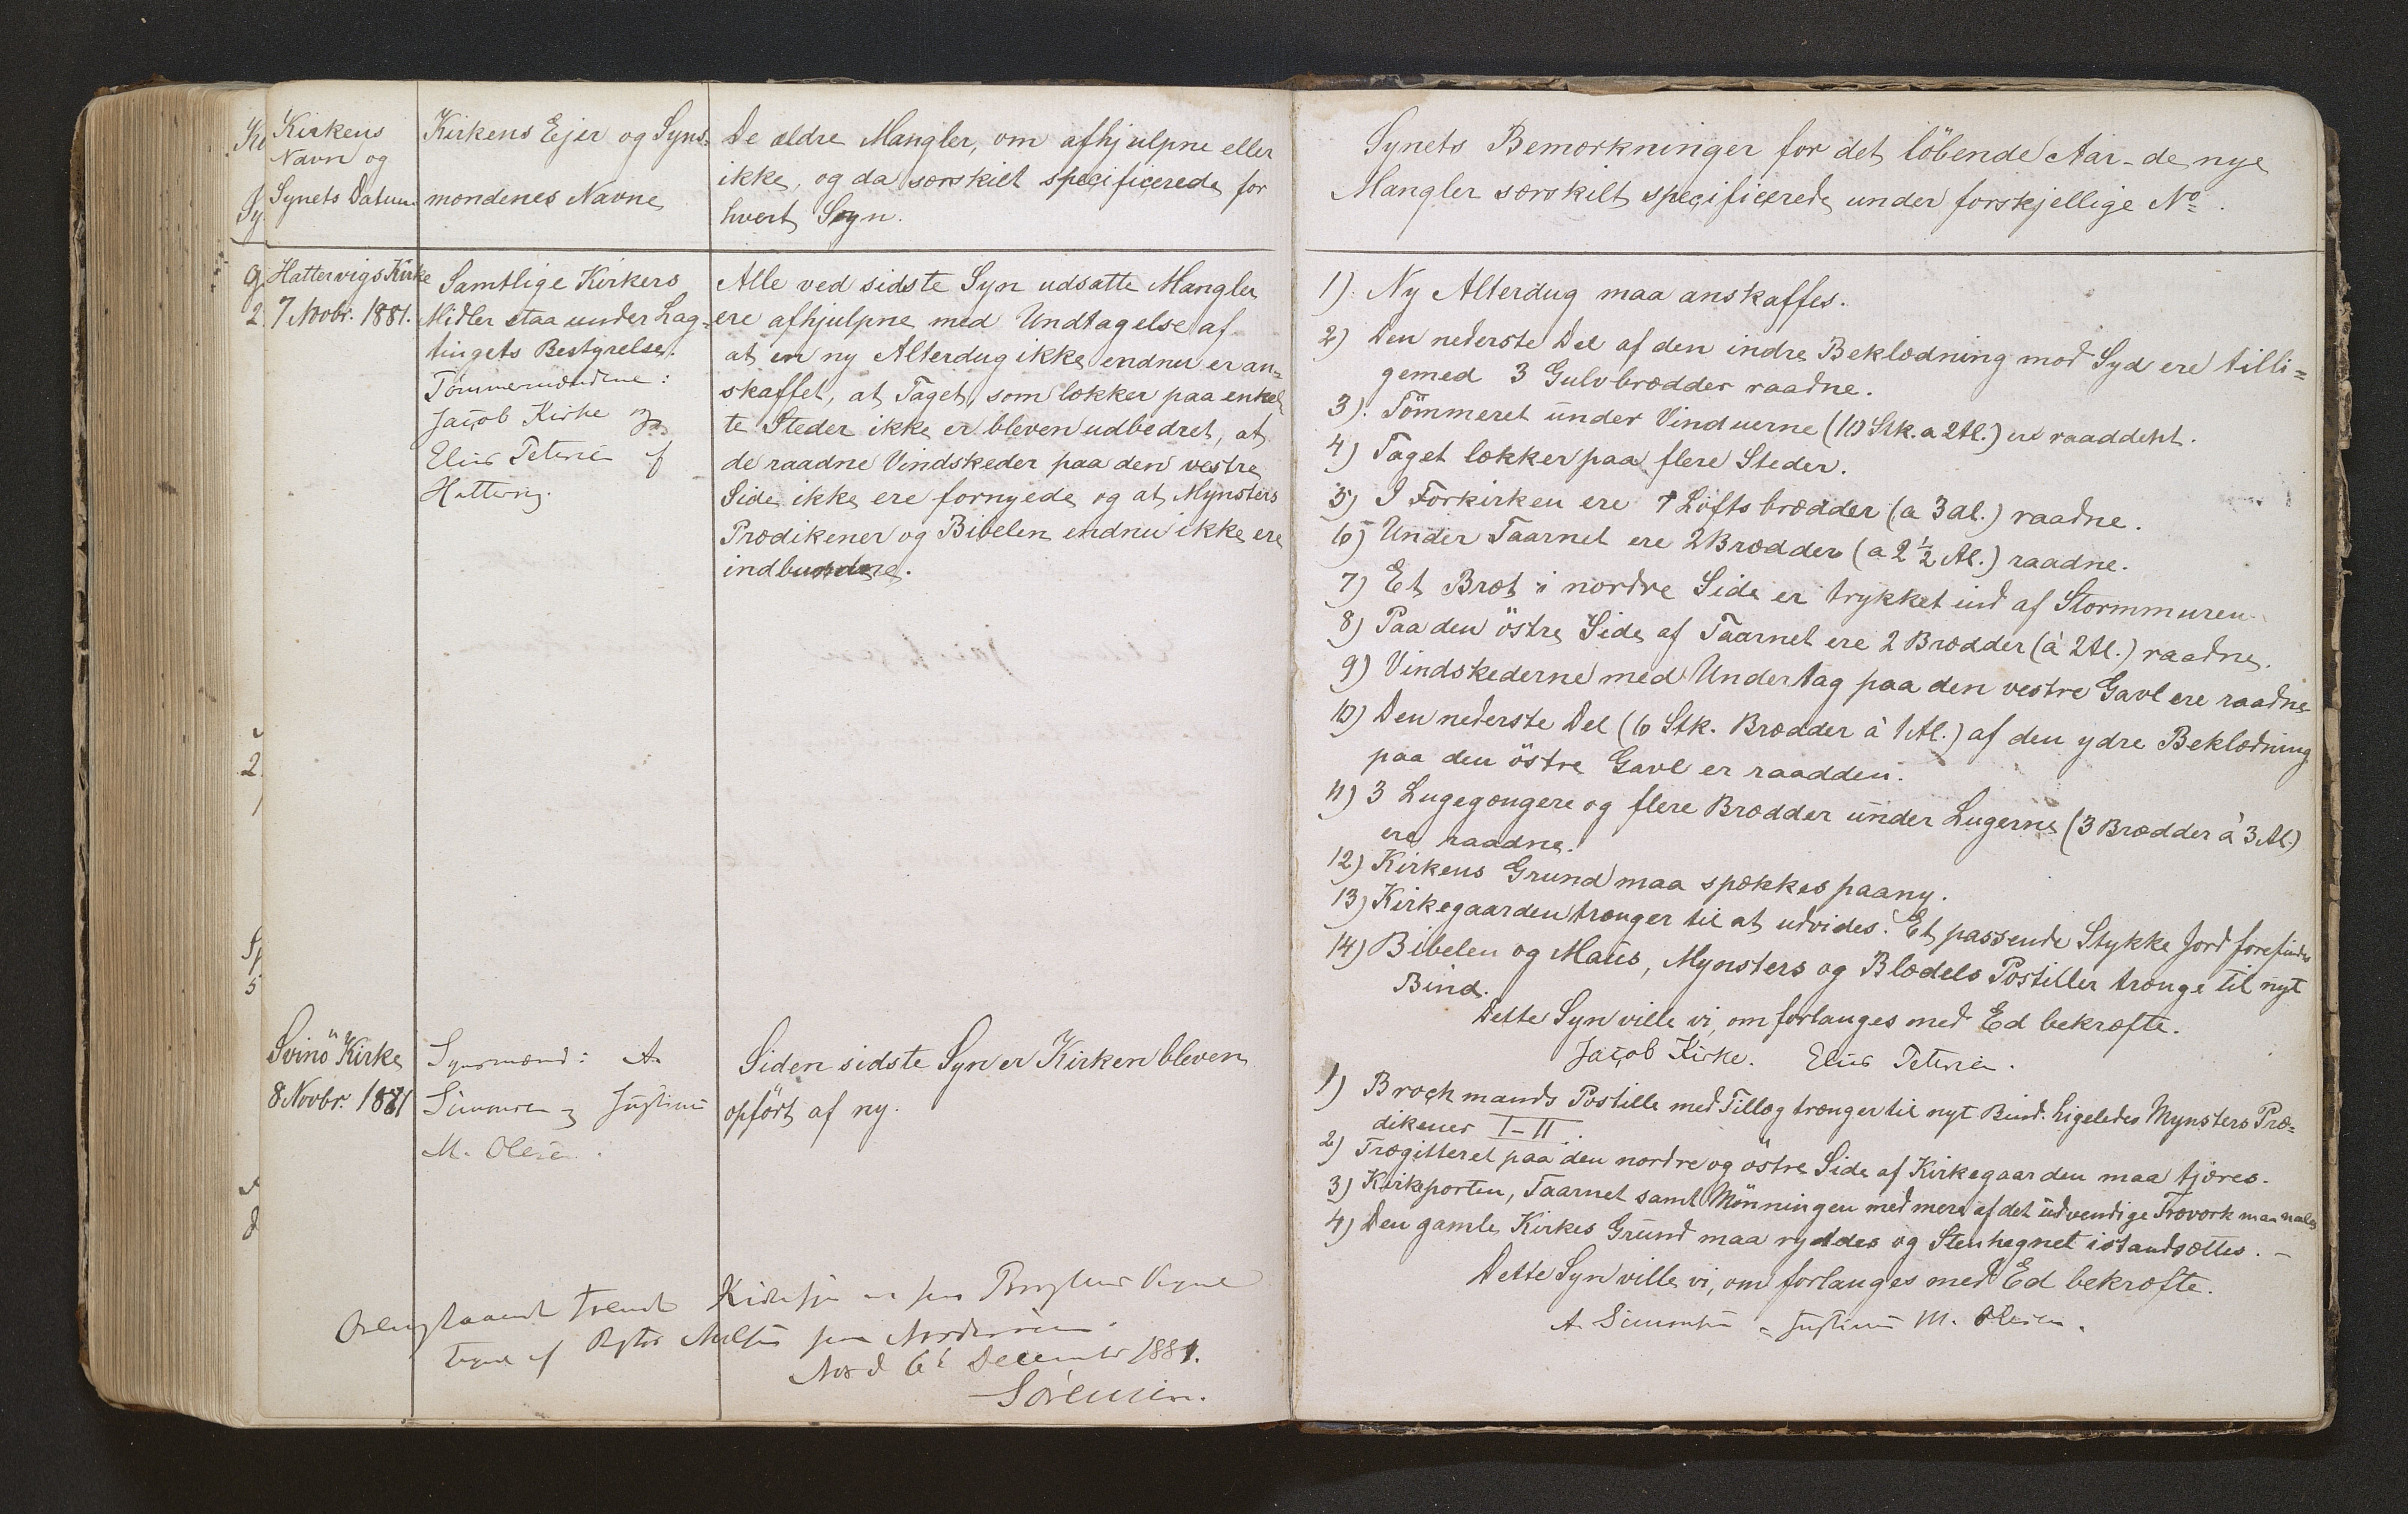 Kirkens
Navn og
Synets Datum.
Kirkens Ejer og Syns-
mændenes Navne
De ældre Mangler, om afhjulpne eller
ikke, og da særskilt specificerede for
hvert Syn.
Hattervigs Kirke
7 Novbr. 1881.
Samtlige Kirkers
Midler staa under Lag-
tingets Bestyrelse.
Tømmermændene:
Jacob Kirke og
Elias Petersen af
Hattervig.
Alle ved sidste Syn udsatte Mangler
ere afhjulpne med Undtagelse af
at en ny Alterdug ikke endnu er an-
skaffet, at Taget, som lækker paa enkel-
te Steder ikke er bleven udbedret, at
de raadne Vindskeder paa den vestre
Side ikke ere fornyede og at Mynsters
Prædikener og Bibelen endnu ikke ere
indbundne.
Svinö Kirke
8 Novbr. 1881
Synsmænd: A.
Simonsen og Justinus
M. Olesen.
Siden sidste Syn er Kirken bleven
opført af ny.
Ovenstaaende trende
Nord 6te December 1881.
Sørensen.
Synets Bemærkninger for det löbende Aar - de nye
Mangler særskilt specificerede under forskjellige No.
1). Ny Alterdug maa anskaffes.
2) Den nederste Del af den indre Beklædning mod Syd ere tilli-
gemed 3 Gulvbrædder raadne.
3). Tömmeret under Vinduerne (10 Stk. a 2 Al.) ere raaddent.
4) Taget lækker paa flere Steder.
5) I Forkirken ere 7 Loftsbrædder (a 3 al.) raadne.
6) Under Taarnet ere 2 Brædder (a 2 1/2 Al.) raadne.
7) Et Bræt i nordre Side er trykket ind af Stormmuren.
8) Paa den östre Side af Taarnet ere 2 Brædder (à 2 Al.) raadne.
9) Vindskederne med Undertag paa den vestre Gavl ere raadne
10) Den nederste Del (6 Stk. Brædder à 1 Al.) af den ydre Beklædning
paa den östre Gavl er raadden.
11) 3 Lugegængere og flere Brædder under Lugerne (3 Brædder à 3 Al.)
ere raadne.
12) Kirkens Grund maa spækkes paany.
13) Kirkegaarden trænger til at udvides. Et passende Stykke Jord forefindes
14) Bibelen og Maus, Mynsters og Blædels Postiller trænge til nyt
Bind.
Dette Syn ville vi, om forlanges med Ed bekræfte.
Jacob Kirke. Elias Petersen.
1) Brochmands Postille med Tillæg trænger til nyt Bind. Ligeledes Mynsters Præ-
dikener I-II.
2) Trægitteret paa den nordre og östre Side af Kirkegaarden maa tjæres.
3) Kirkeporten, Taarnet samt Mönningen med mere af det udvendige Træværk maa males
4) Den gamle Kirkes Grund maa ryddes og Stenhegnet istandsættes. -
Dette Syn ville vi, om forlanges med Ed bekræfte.
A. Simonsen - Justinus M. Olesen.